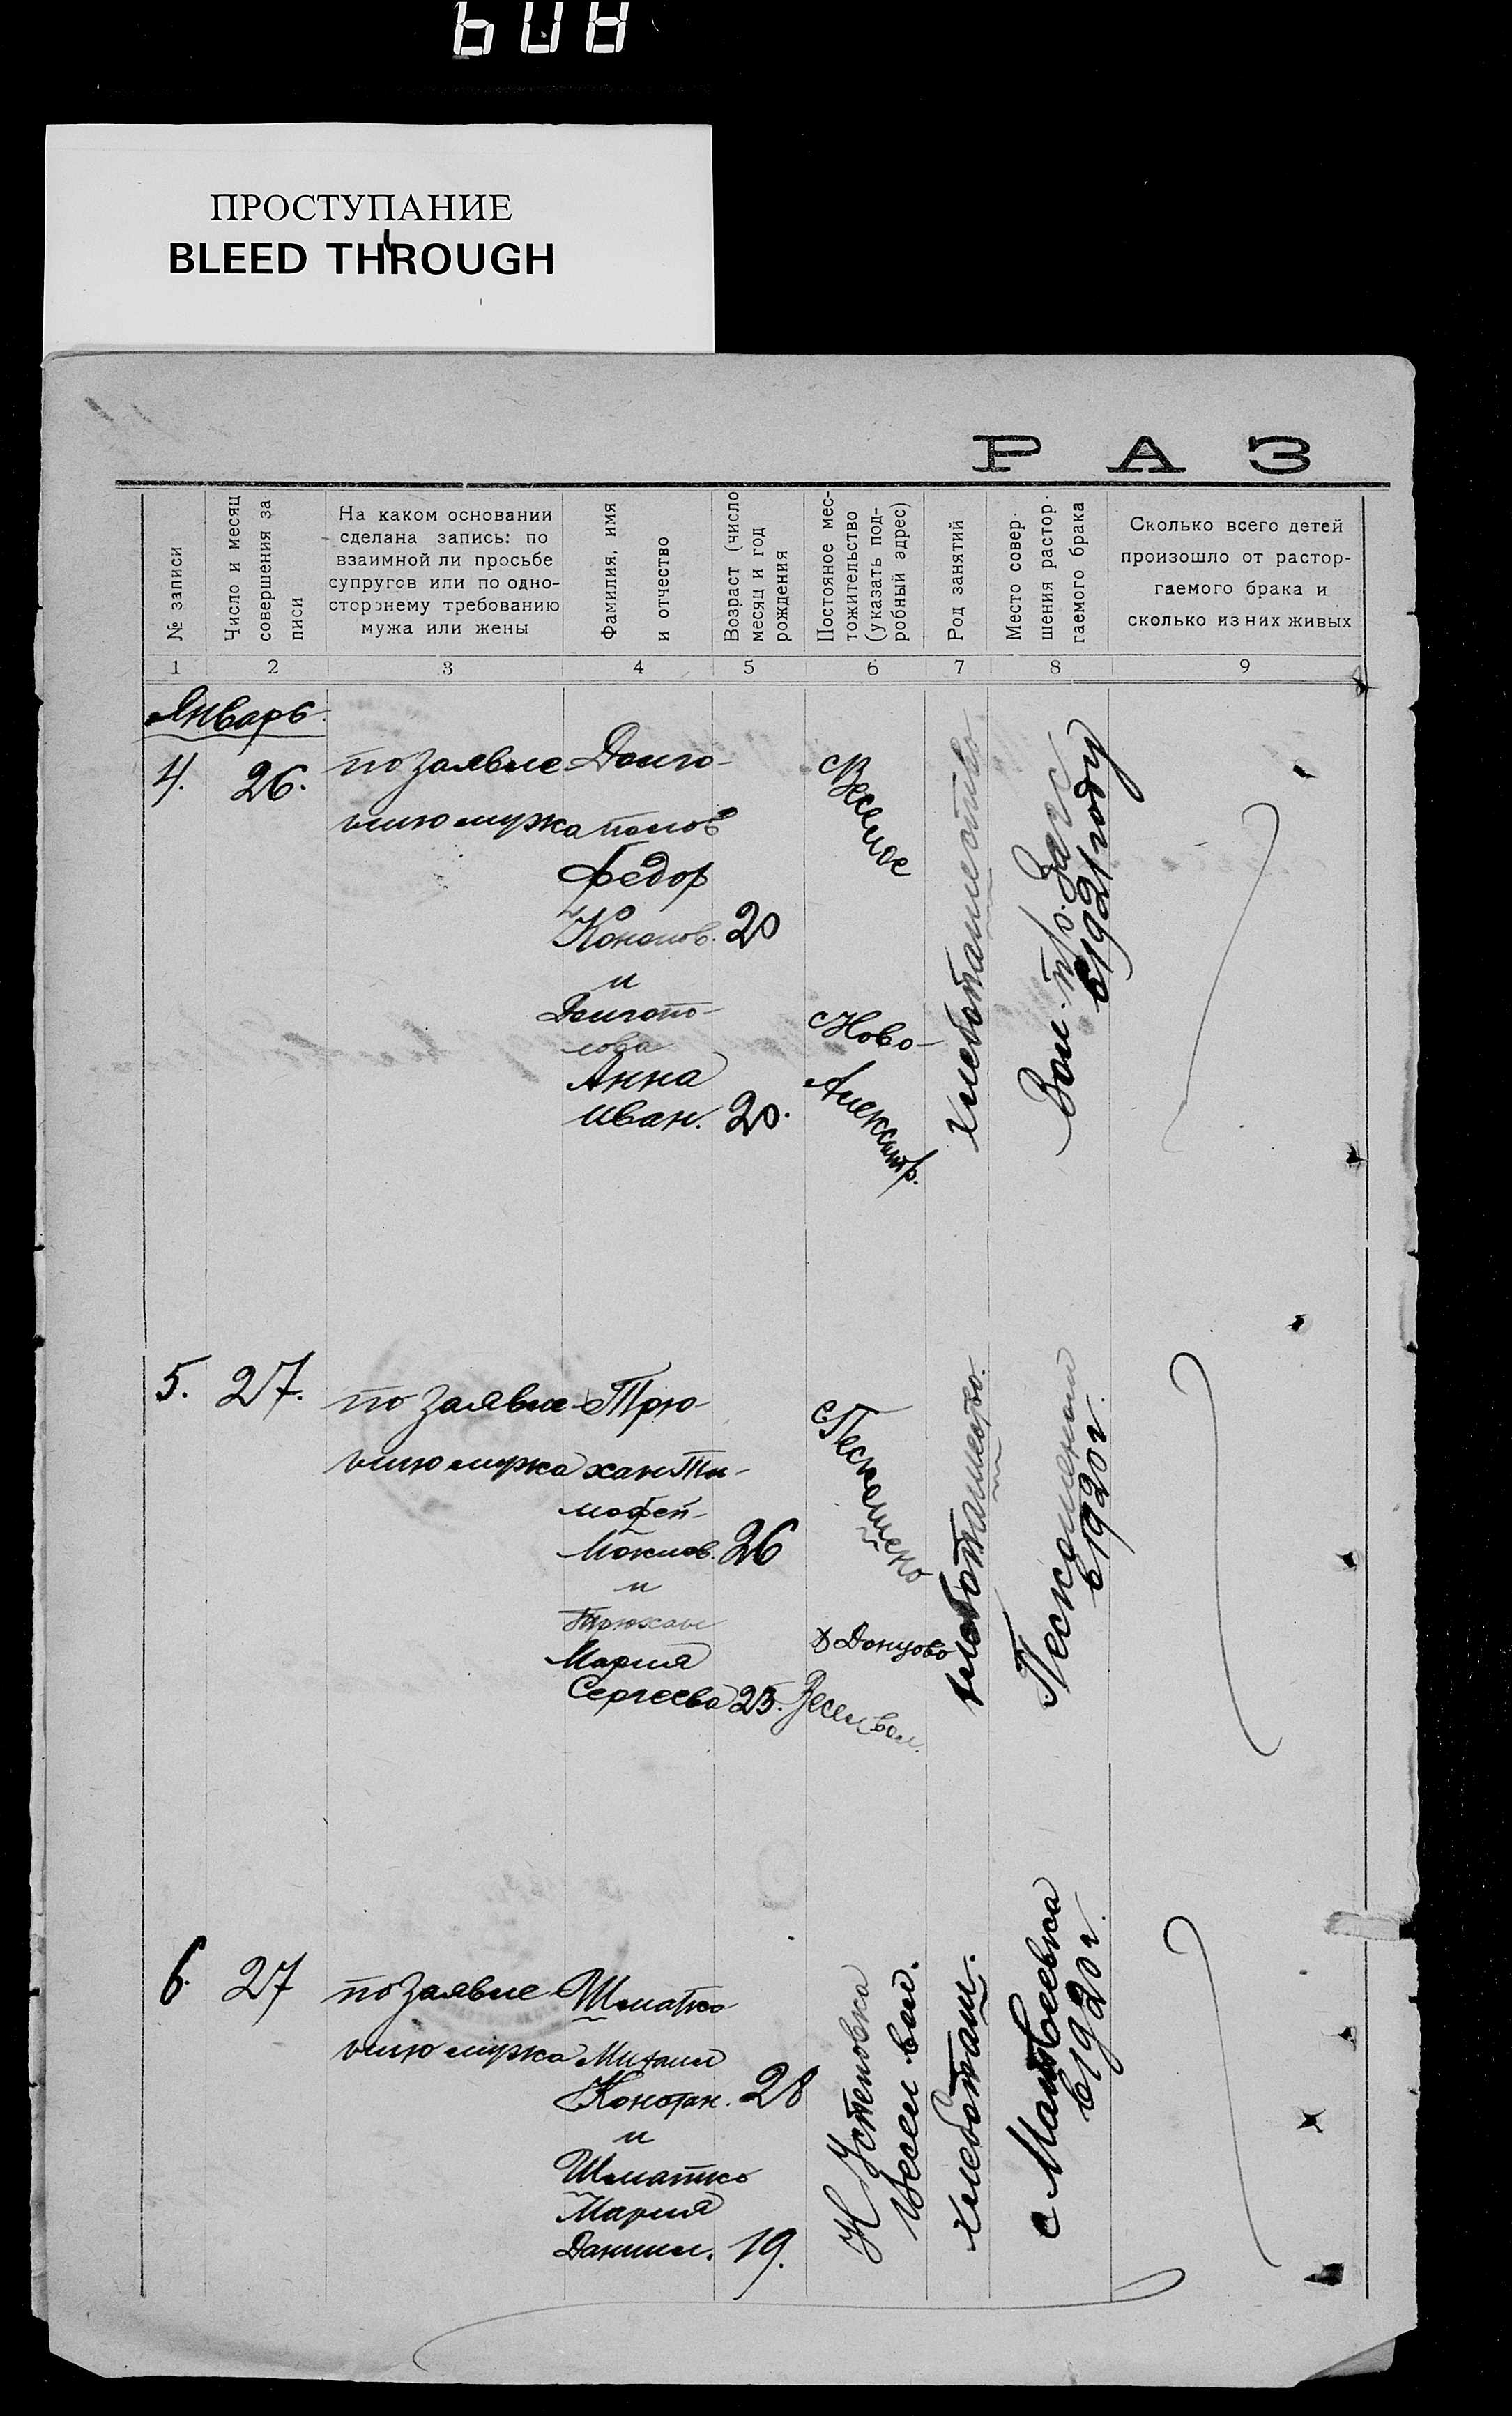 608
ПРОСТУПАНИЕ
BLEED THROUGH
РАЗ
№ записи
Число и месяц
совершения за
писи
На каком основании
сделана запись: по
взаимной ли просьбе
супругов или по одно-
стороннему требованию
мужа или жены
Фамилия, имя
и отчество
Возраст (число
месяц и год
рождения
Постояное мес-
тожительство
(указать под-
робный адрес)
Род занятий
Место совер-
шения растор-
гаемого брака
Сколько всего детей
произошло от растор-
гаемого брака и
сколько из них живых
1 2 3 4 5 6 7 8 9
Январь
4. 26.
по заявле-
нию мужа
Долго-
полов
Федор
Кононов. 20
и
Долгопо-
лова
Анна
Иван. 20.
с Веселое
с Ново-
Александр.
хлебопашество
Вол. пр. Загс
в 1921 году
5. 27.
по заявле-
нию мужа
Трю-
хан Ти-
мофей
Яковлев. 26
и
Трюхан
Мария
Сергеева 25.
с Пескошено
д Донцово
Весел вол.
хлебопашество.
Пескошеном
в 1920 г.
6. 27
по заявле-
нию мужа
Шматко
Михаил
Констан. 28
и
Шматко
Мария
Даниил. 19.
Н Устеновка
Весел вол.
хлебопаш.
с Матвеевка
в 1920 г.